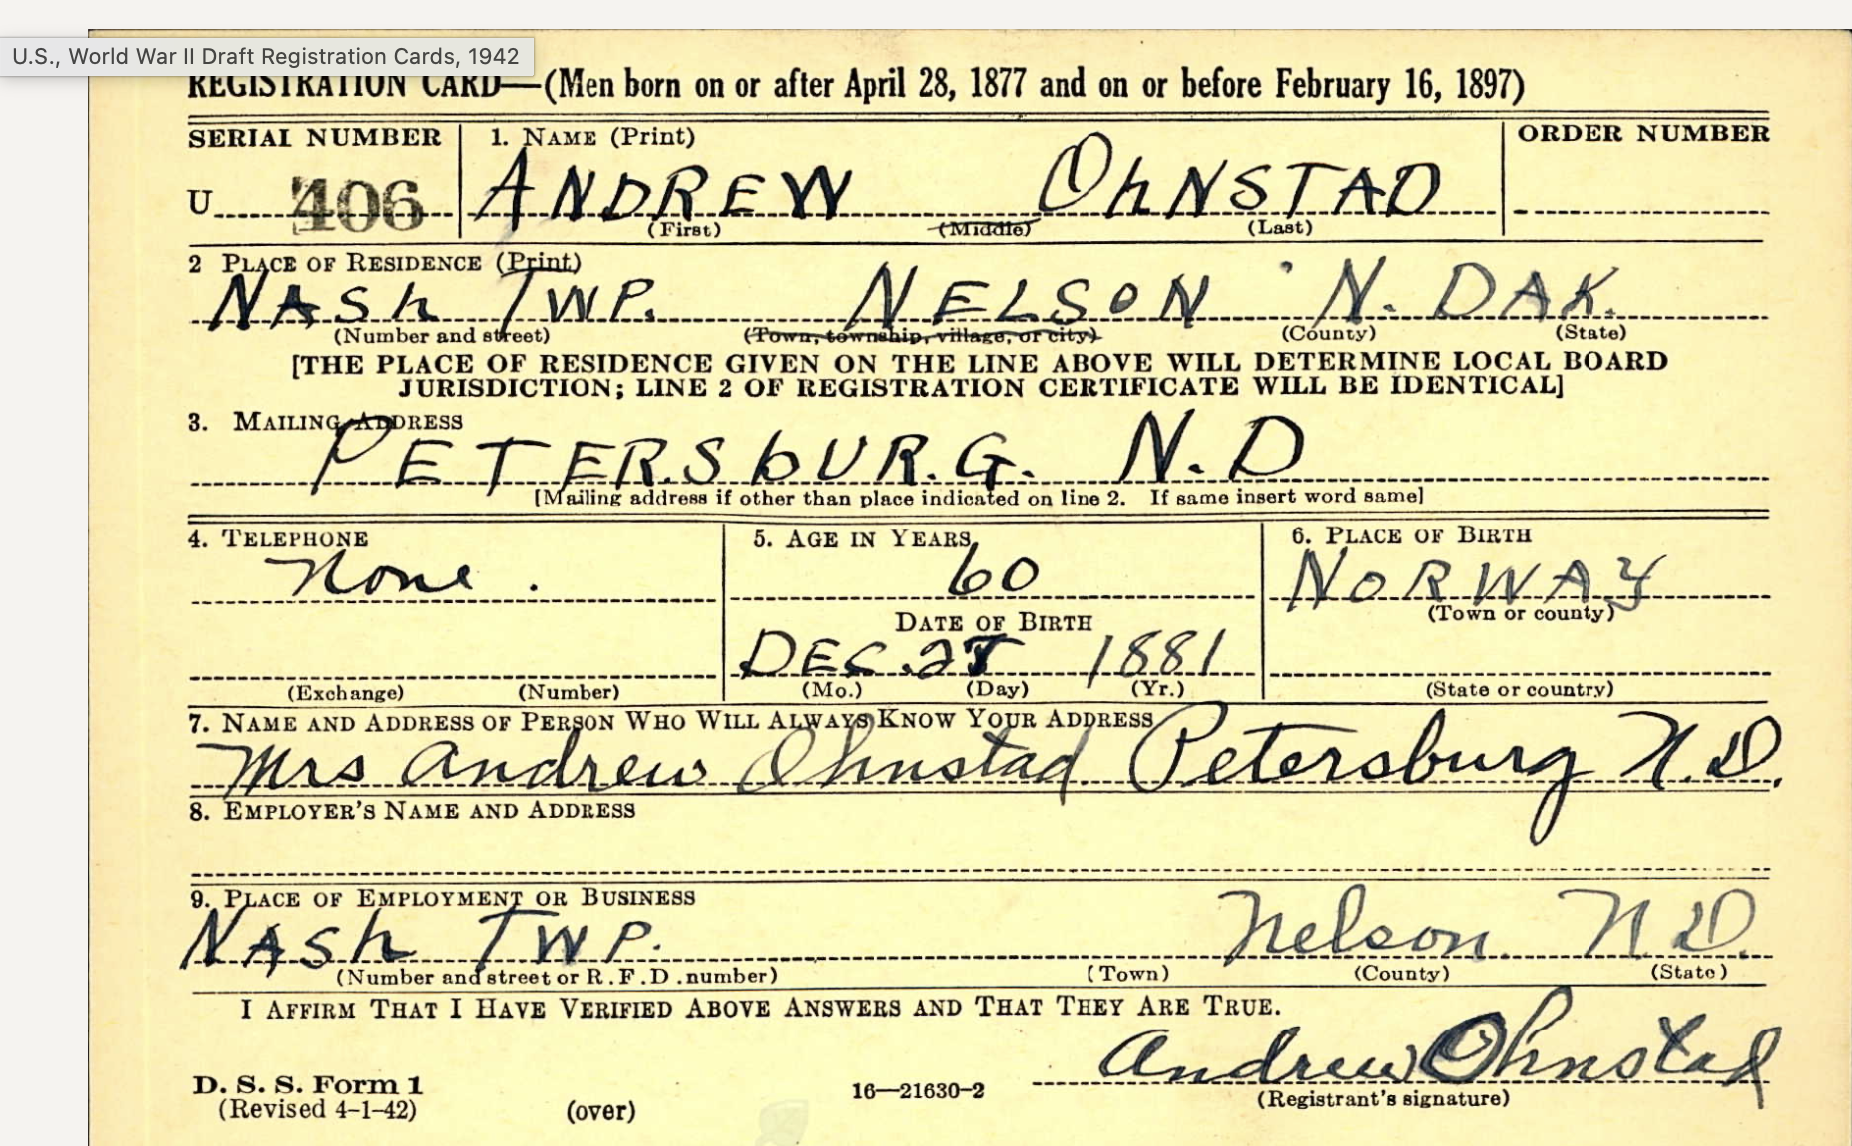 U.S., World War II Draft Registration Cards, 1942
REGISTRATION CARD—(Men born on or after April 28, 1877 and on or before February 16, 1897)
SERIAL NUMBER 1. NAME (Print) ORDER NUMBER
U 406 ANDREW OhNSTAD
(First) (Middle) (Last)
2 PLACE OF RESIDENCE (Print)
NASh TWP. NELSON N. DAK.
(Number and street) (Town, township, village, or city) (County) (State)
[THE PLACE OF RESIDENCE GIVEN ON THE LINE ABOVE WILL DETERMINE LOCAL BOARD
JURISDICTION; LINE 2 OF REGISTRATION CERTIFICATE WILL BE IDENTICAL]
3. MAILING ADDRESS
PETERSbURG. N.D
[Mailing address if other than place indicated on line 2. If same insert word same]
4. TELEPHONE 5. AGE IN YEARS 6. PLACE OF BIRTH
None. 60 NORWAY
(Town or county)
DATE OF BIRTH
DEC. 1881
(Exchange) (Number) (Mo.) (Day) (Yr.) (State or country)
7. NAME AND ADDRESS OF PERSON WHO WILL ALWAYS KNOW YOUR ADDRESS
Mrs Andrew Ohnstad Petersburg N.D.
8. EMPLOYER'S NAME AND ADDRESS
9. PLACE OF EMPLOYMENT OR BUSINESS
NASh TWP. Nelson N.D.
(Number and street or R.F.D. number) (Town) (County) (State)
I AFFIRM THAT I HAVE VERIFIED ABOVE ANSWERS AND THAT THEY ARE TRUE.
Andrew Ohnstad
D. S. S. Form 1 16—21630-2
(Revised 4-1-42) (over) (Registrant's signature)